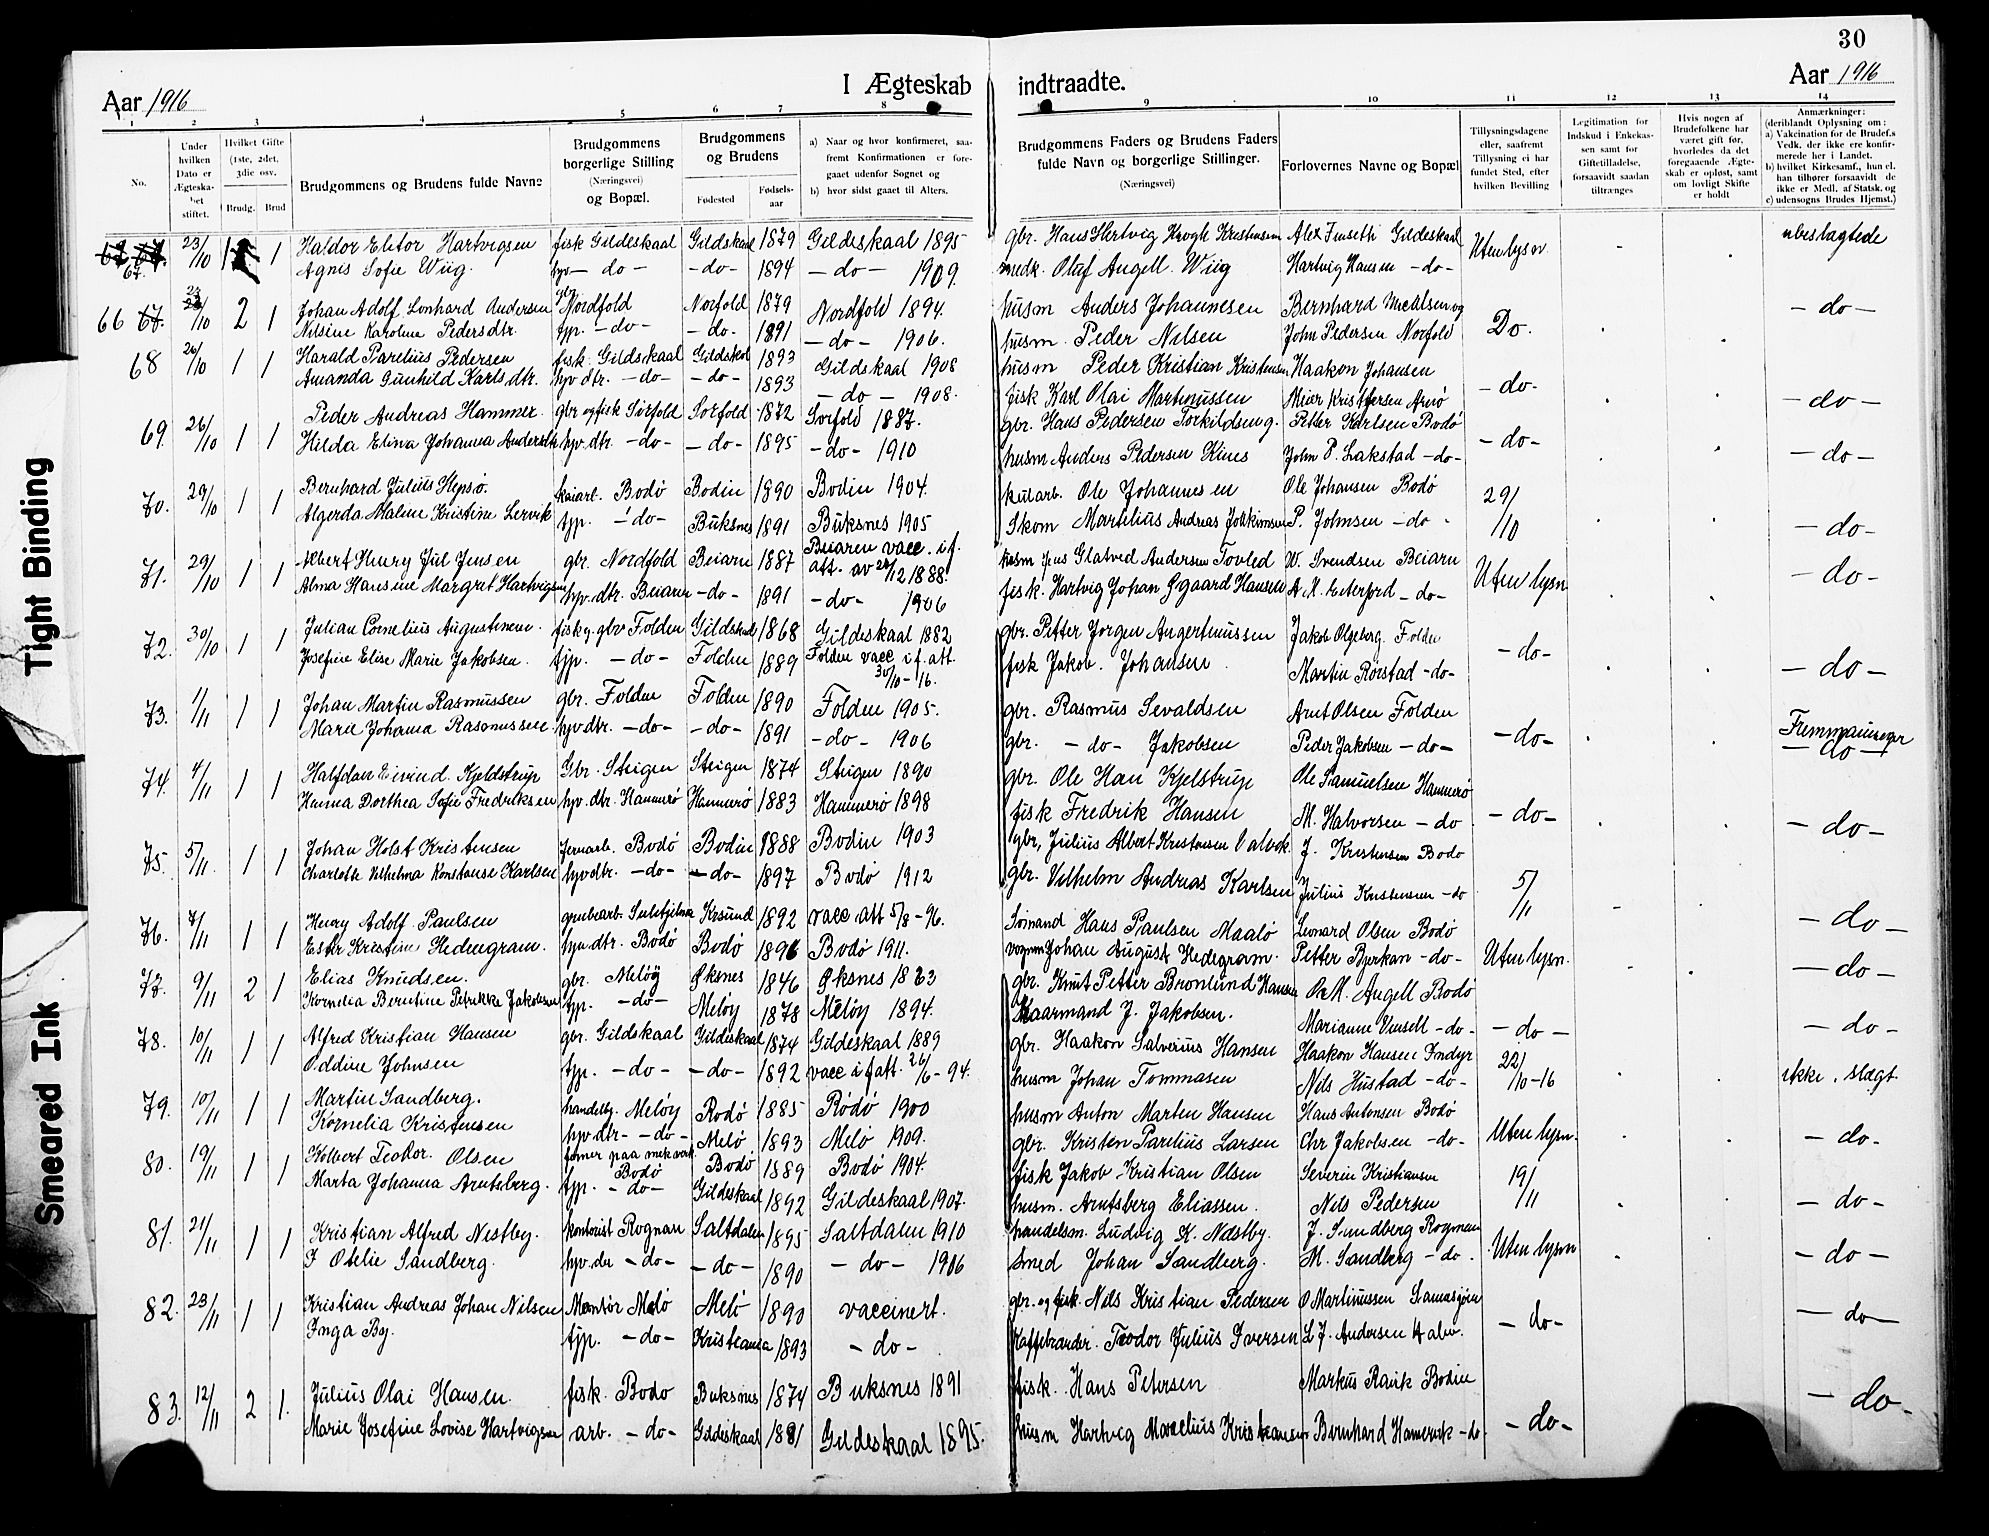 30
Aar 1916
I Ægteskab indtraadte.
Aar 1916
1 2 3 4 5 6 7 8 9 10 11 12 13 14
No.
Under hvilken Dato er Ægteskabet stiftet.
Hvilket Gifte (1ste, 2det, 3die osv.
Brudg. Brud
Brudgommens og Brudens fulde Navne
Brudgommens borgerlige Stilling (Næringsvei) og Bopæl.
Brudgommens og Brudens
Fødested Fødselsaar
a) Naar og hvor konfirmeret, saafremt Konfirmationen er foregaaet udenfor Sognet og
b) hvor sidst gaaet til Alters.
Brudgommens Faders og Brudens Faders fulde Navn og borgerlige Stillinger.
(Næringsvei)
Forlovernes Navne og Bopæl
Tillysningsdagene eller, saafremt Tillysning ei har fundet Sted, efter hvilken Bevilling
Legitimation for Indskud i Enkekassen samt for Giftetilladelse, forsaavidt saadan tiltrænges
Hvis nogen af Brudefolkene har været gift før, hvorledes da det foregaaende Ægteskab er opløst, samt om lovligt Skifte er holdt
Anmærkninger: (deriblandt Oplysning om:
a) Vakcination for de Brudef.s Vedk. der ikke ere konfirmerede her i Landet.
b) hvilket Kirkesamf., hun el. han tilhører forsaavidt de ikke er Medl. af Statsk. og
c) udensogns Brudes Hjemst.)
67. 23/10 1 1 Haldor Elitor Hartvigsen fisk Gildeskaal Gildskaal 1879 Gildeskaal 1895 gbr. Hans Hertvig Krogh Kristensen Alex Finseth Gildeskaal Uten lysn ubeslagtede
Agnis Sofie Wiig. hv - do - - do - 1894 - do - 1909. medk. Olaf Angell Wiig Hartvig Hansen - do -
66 23/10 2 1 Johan Adolf Lonhard Andersen gbr Nordfold Norfold 1879 Nordfold 1894. husm Anders Johannesen Bernhard Mikalsen og - do -
Nilsine Karoline Pedersdtr. tjp. - do - - do. 1891 - do - 1906. husm. Peder Nilsen John Pedersen Norfold Do.
68 26/10 1 1 Harald Parelius Pedersen fisk. Gildskaal Gildskal 1893 Gildskaal 1908 husm Peder Kristian Kristensen Haakon Johansen
Amanda Gunhild Karlsdtr. hv dtr. - do - - do - 1893 - do - 1908. fisk Karl Olai Martinussen Meier Kristofersen Arnø - do - - do -
69. 26/10 1 1 Peder Andreas Hammer. gbr og fisk Sörfold Sorfold 1872 Sorfold 1887. gbr. Hans Pedersen Torkildseng. Petter Karlsen Bodö
Hilda Elina Johanna Andersdtr hv. dtr. - do - - do - 1895 - do - 1910 husm Anders Pedersen Kines John P. Lakstad - do - - do - - do -
70. 29/10 1 1 Bernhard Julius Hepsö. kaiarb. Bodø Bodin 1890 Bodin 1904. kularb. Ole Johannesen Ole Johansen Bodø 29/10
Algerda Maline Kristine Lervik tjp. - do - Buksnes 1891 Buksnes 1905 Skom Martilius Andreas Joakimsen P. Johnsen - do - - do -
71. 29/10 1 1 Albert Henry Jul Jensen gbr. Nordfold Beiarn 1887 Beiaren vacc. i f. att. av 28/12 1888. husm Jens Glatved Andersen Tovled W. Svendsen Beiarn Uten lysn - do -
Alma Hansine Margret Hartvigsen hv. dtr. Beiarn - do - 1891 - do - 1906 fisk. Hartvig Johan Ggaard Hansen A. M. Eiterfjord - do -
72. 30/10 1 1 Julian Cornelius Augustinsen. fisk g. gbr Folden Gildskaal 1868 Gildeskaal 1882 gbr. Petter Jorgen Angertinussen Jakob Olgeberg Folden - do -
Josefine Elise Marie Jakobsen. tjp. - do - Folden 1889 Folden vacc i f. att. 30/10-16. fisk Jakob. Johansen Martin Rörstad - do - - do -
73. 1/11 1 1 Johan Martin Rasmussen gbr. Folden Folden 1890 Folden 1905. gbr. Rasmus Sevaldsen Arnt Olsen Folden
Marie Johanna Rasmussen hv dtr. - do - - do - 1891 - do - 1906 gbr. - do - Jakobsen Peder Jakobsen - do - - do - - do -
74. 4/11 1 1 Halfdan Eivind. Kjeldstrup Gbr. Steigen Steigen 1874 Steigen 1890 gbr. Ole Han Kjelstrup Ole Samuelsen Hammerö
Hanna Dorthea Sofie Fredriksen hv. dtr. Hammerö Hammerö 1883 Hammerö 1898 fisk Fredrik Hansen M. Halvorsen - do - do - - do -
75. 5/11 1 1 Johan Holst Kristensen Jernarb. Bodö Bodin 1888 Bodin 1903 gbr, Julius Albert Kristensen Valvik J. Kristensen Bodo
Charlotte Vilhelma Konstanse Karlsen hv dtr. - do - - do - 1897 Bodö 1912 gbr. Vilhelm Andreas Karlsen Julius Kristensen - do 5/11 - do -
76. 7/11 1 1 Henry Adolf Paulsen grubearb. Sulitjelma Krsund 1892 vacc att 5/8-96. Sömand Hans Paulsen Maalö Leonard Olsen Bodö
Ester Kristine Hedengram. hv. dtr. Bodö Bodö 1896 Bodö 1911. vognm Johan August Hedegram. Petter Bjerkan - do - Uten lysn. - do -
77. 9/11 2 1 Elias Knudsen. gbr. Meløy Øksnes 1846 Øksnes 1863 gbr. Knut Petter Bronlund Hansen O. M. Angell Bodö
Kornelia Berntine Petrikke Jakobsen tjp. - do - Meløy 1878 Meløy 1894. Gaarmand J. Jakobsen. Marianne Vinsell - do - - do - - do -
78. 10/11 1 1 Alfred Kristian Hansen gbr. Gildskaal Gildeskaal 1874 Gildeskaal 1889 gbr. Haakon Salverius Hansen Haakon Hansen Indyr 22/10-16
Oddine Johnsen tjp. - do - - do - 1892 vacc i f att. 26/6-94. husm Johan Tommasen Nils Hustad - do - ikke. slægt
79. 10/11 1 1 Martin Sandberg. handelbj. Meløy Rodö 1885 Rödö 1900 husm Anton Marten Hansen Hans Antonsen Bodö
Kornelia Kristensen hv dtr. - do - Melö 1893 Melö 1909. gbr. Kristen Parelius Larsen Chr Jakobsen - do - Uten lysn. - do -
80. 19/11 1 1 Kolbert Teodor. Olsen former paa mek verk. Bodö Bodö 1889 Bodö 1904. fisk Jakob Kristian Olsen Severin Kristiansen 19/11
Marta Johanna Arntsberg. tjp. - do - Gildeskaal 1892 Gildeskaal 1907. husm. Arntsberg Eliassen. Nils Pedersen - do -
81. 21/11 1 1 Kristian Alfred Nestby. kontorist Rognan Saltdalen 1895 Saltdalen 1910 handelsm. Ludvig K. Næstby. J. Sundberg Rognan
J Otelie Sandberg. hv. dtr - do - - do - 1890 - do - 1906 Smed Johan Sandberg. M. Sandberg - do. Uten lysn - do -
82. 23/11 1 1 Kristian Andreas Johan Nilsen Montör Melö Melö 1890 vaccinert. gbr. og fisk. Nils Kristian Pedersen O Martinussen Sannasjöen
Inga By. tjp. - do - Kristiania 1893 - do - Kaffebrander. Teodor Julius Iversen L. J. Andersen - do - - do -
83. 12/11 2 1. Julius Olai Hansen. fisk. Bodo Buksnes 1874 Buksnes 1891 fisk. Hans Petersen Markus Rank Bodin
Marie Josefine Lovise Hartvigsen arb. - do - Gildeskaal 1881 Gildeskaal 1895. husm Hartvig Marelius Kristiansen Bernhard Hamerik - do - - do - - do -
Tight Binding
Smeared Ink